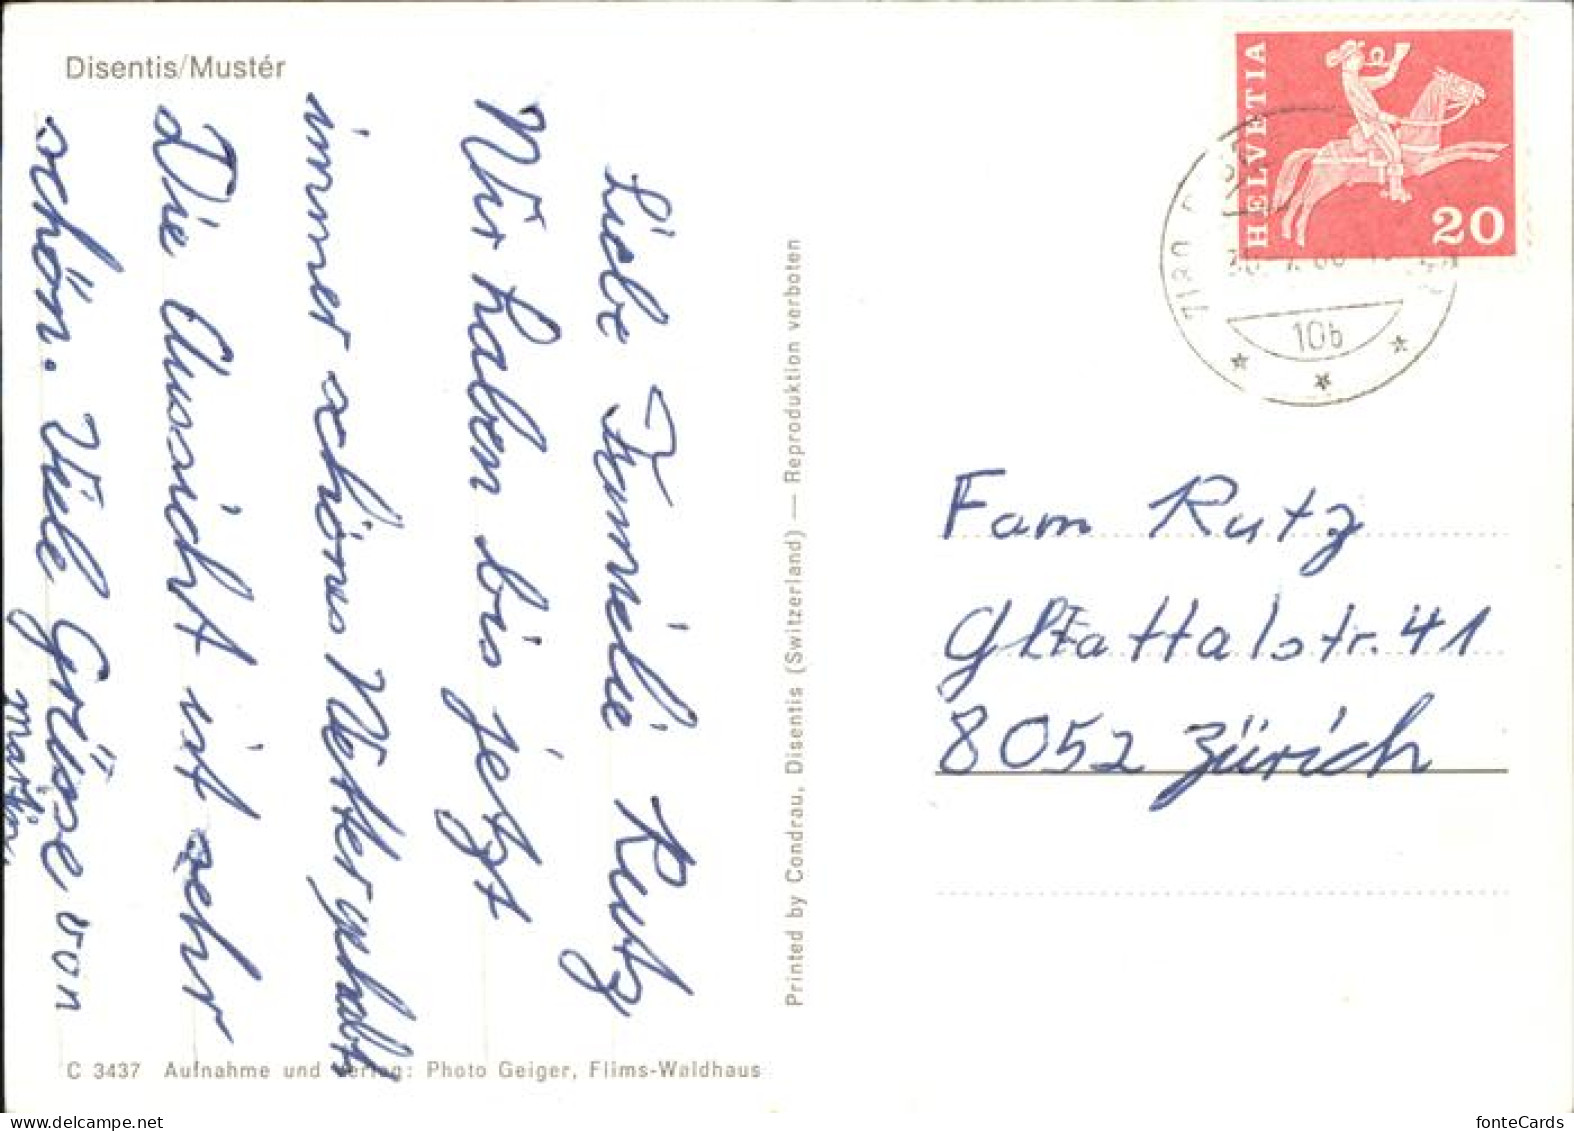 Disentis/Mustér
Liebe Familie Rutz
Wir haben bis jetzt
immer schönes Wetter gehabt
Die Aussicht ist sehr
schön. Viele Grüsse von
Martin
C 3437 Aufnahme und Verlag: Photo Geiger, Flims-Waldhaus
Printed by Condrau, Disentis (Switzerland) — Reproduktion verboten
HELVETIA
20
7180
10b
Fam Rutz
Glattalstr. 41
8052 Zürich
fonteCards